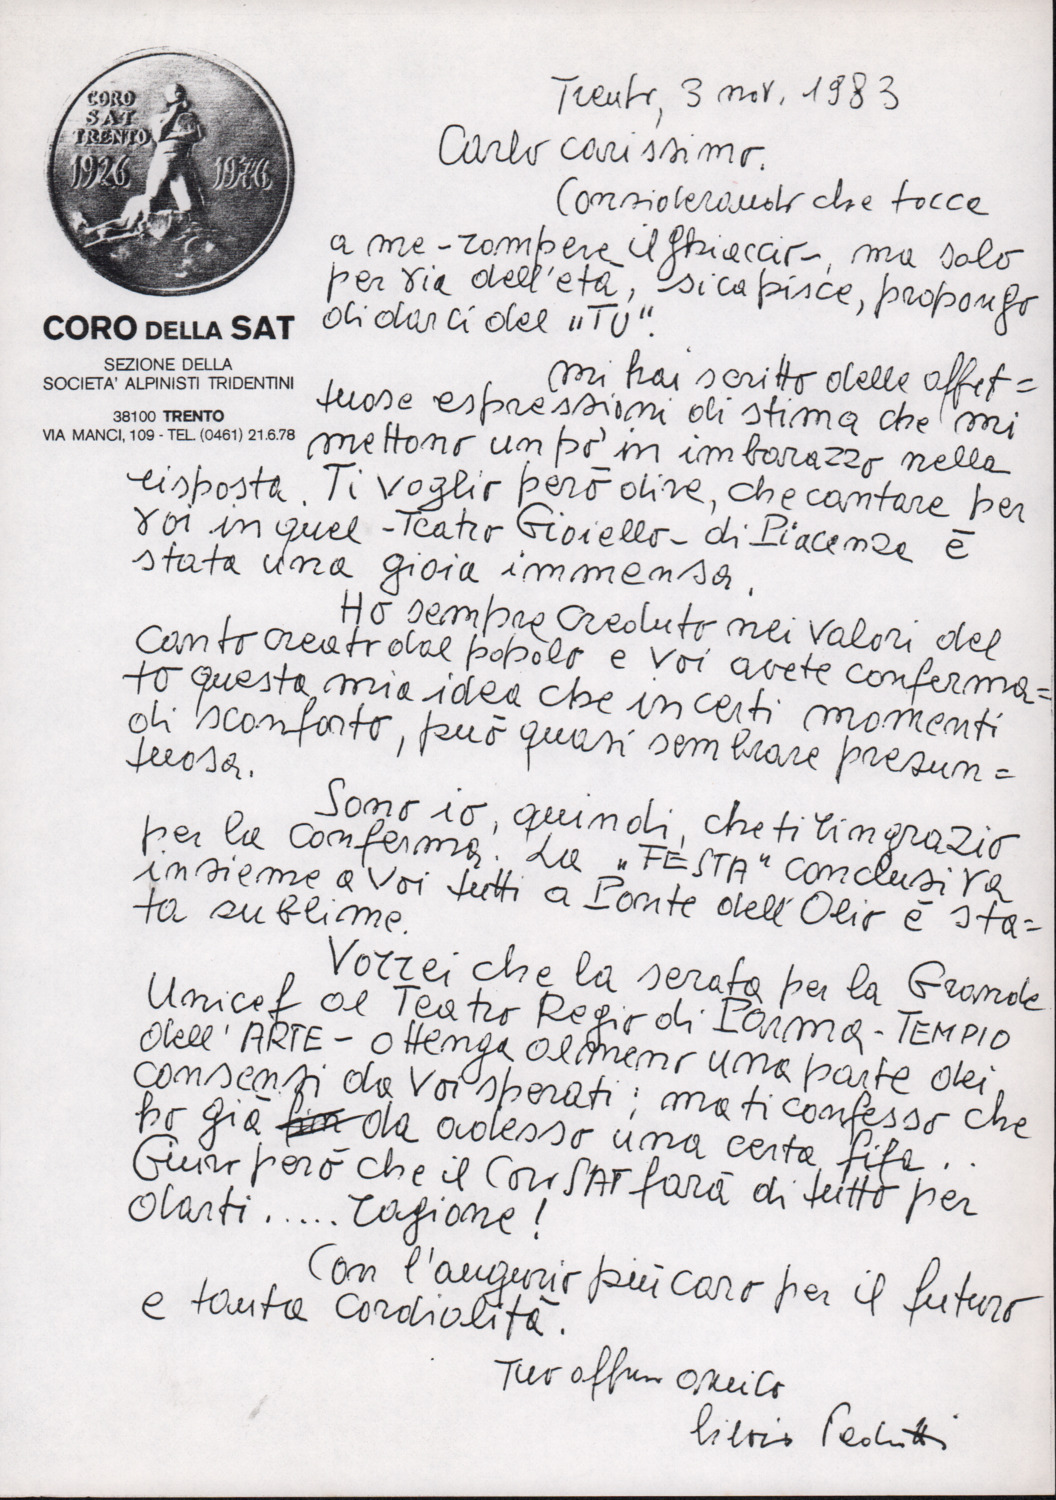 CORO
SAT
TRENTO
1926 1976
CORO DELLA SAT
SEZIONE DELLA
SOCIETA' ALPINISTI TRIDENTINI
38100 TRENTO
VIA MANCI, 109 - TEL. (0461) 21.6.78
Trento, 3 nov. 1983
Carlo carissimo.
Considerando che tocca
a me - rompere il ghiaccio -, ma solo
per via dell'età, si capisce, propongo
di darci del "TU".
mi hai scritto delle affet=
tuose espressioni di stima che mi
mettono un pò in imbarazzo nella
risposta. Ti voglio però dire, che cantare per
voi in quel - Teatro Gioiello - di Piacenza è
stata una gioia immensa.
Ho sempre creduto nei valori del
canto creato dal popolo e voi avete conferma=
to questa mia idea che in certi momenti
di sconforto, può quasi sembrare presun=
tuosa.
Sono io, quindi, che ti ringrazio
per la conferma. La "FESTA" conclusiva
insieme a voi tutti a Ponte dell'Olio è sta=
ta sublime.
Vorrei che la serata per la Grande
Unicef al Teatro Regio di Parma - TEMPIO
dell'ARTE - ottenga almeno una parte dei
consensi da voi sperati; ma ti confesso che
ho già da adesso una certa fifa..
Giuro però che il Coro SAT farà di tutto per
darti ..... ragione!
Con l'augurio più caro per il futuro
e tanta cordialità.
Tuo affmo amico
Silvio Pedrotti